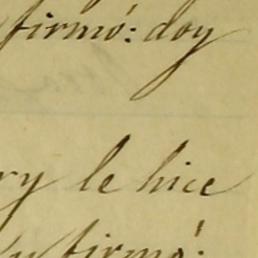 firmó: doy
ry le hice
y firmó: